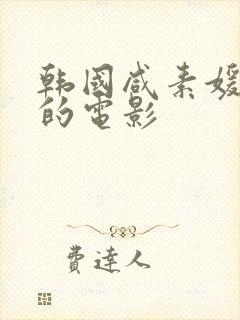 韩國咸素媛
的電影
費達人